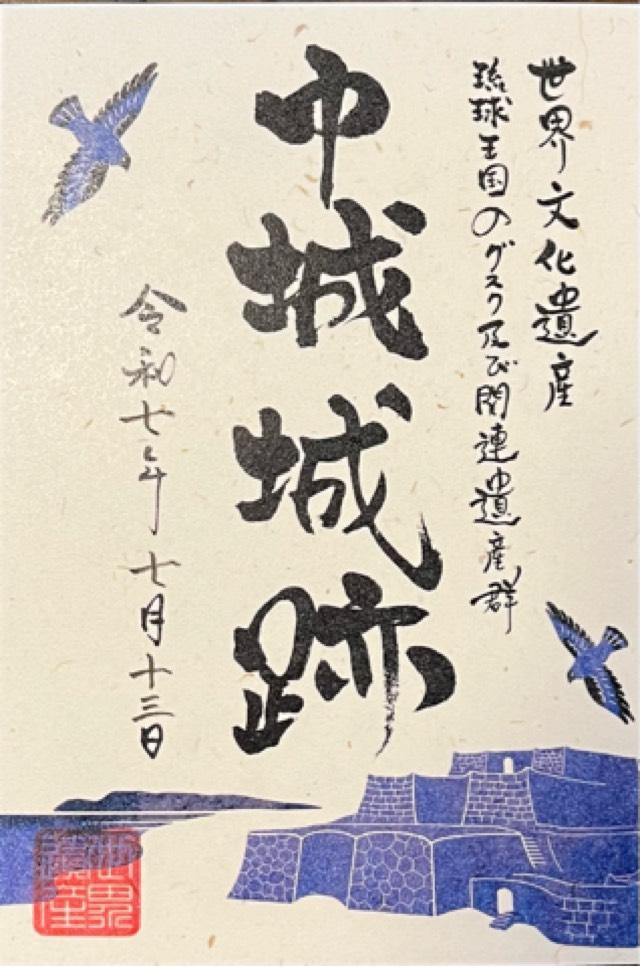 世界文化遺産
琉球王国のグスク及び関連遺産群
中城城跡
令和七年七月十三日
世界遺産